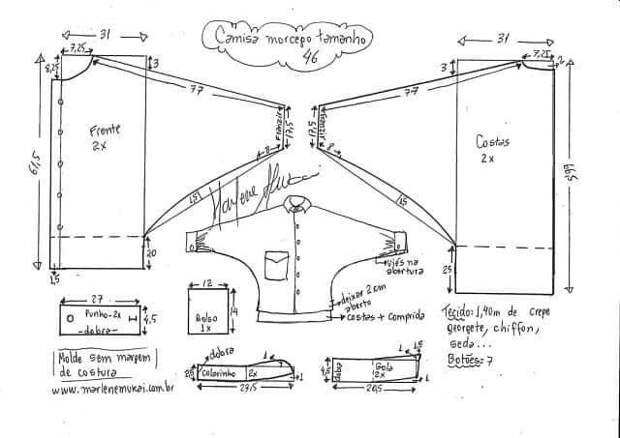 Camisa morcego tamanho
46
31
7,25
8,25
3
77
Franzir
17,5
8
1,5
Frente
2x
61,5
20
1,5
31
7,25
2
3
77
17,5
Franzir
8
1,5
Costas
2x
66,5
25
Marlene Mukai
viés na
abertura
deixar 2 cm
aberto
costas + comprida
27
Punho-2x
-dobra-
4,5
12
Bolso
1x
14
Tecido: 1,40m de crepe
georgete, chiffon,
seda...
Botões: 7
Molde sem margem
de costura
www.marlenemukai.com.br
dobra
1
Colarinho
2x
1
23,5
dobra
Gola
2x
1,5
1
20,5